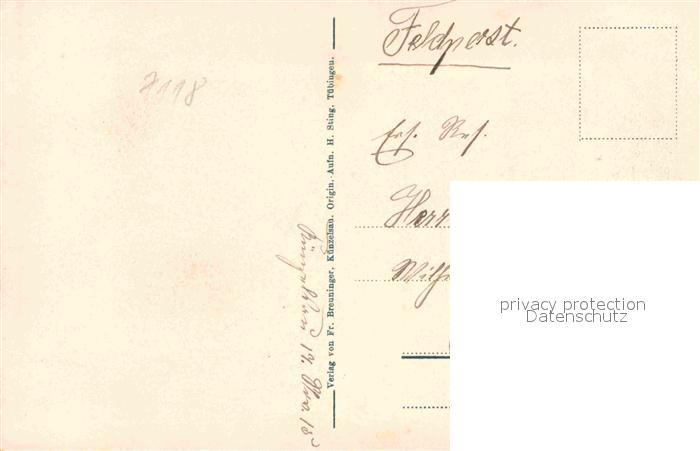 7118
Verlag von Fr. Breuninger, Künzelsau. Origin.-Aufn. H. Sting, Tübingen.
Künzelsau 14. Nov. 15
Feldpost.
Ers. Res.
Herr
Wilh
privacy protection
Datenschutz